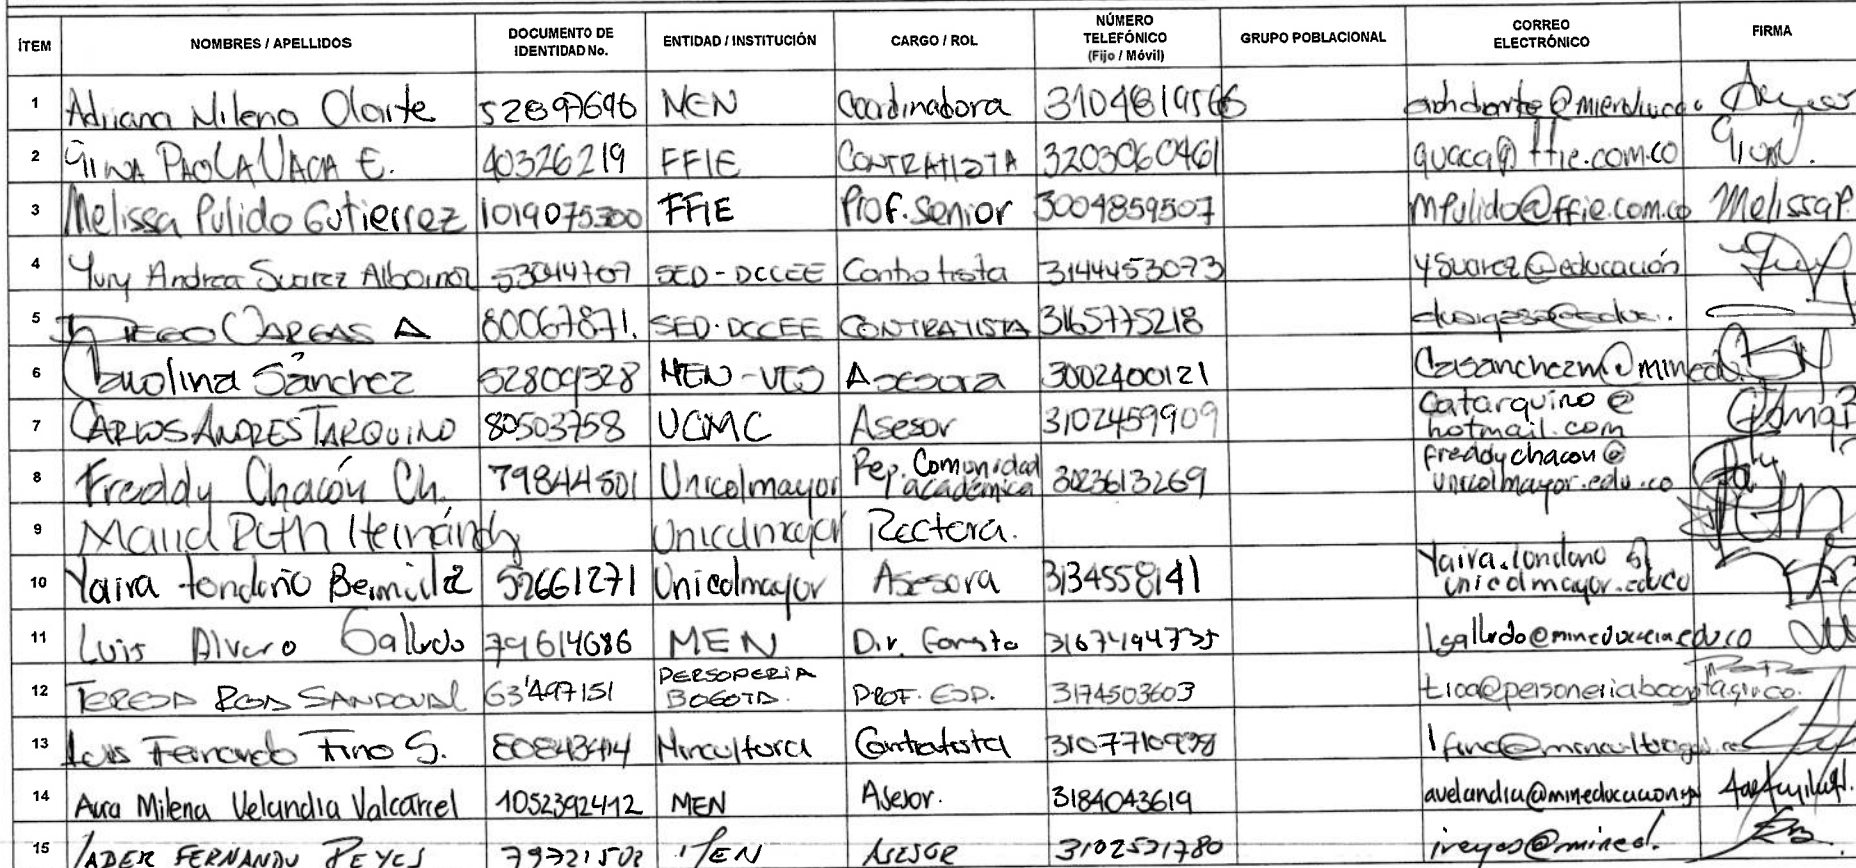 ÍTEM NOMBRES / APELLIDOS DOCUMENTO DE IDENTIDAD No. ENTIDAD / INSTITUCIÓN CARGO / ROL NÚMERO TELEFÓNICO (Fijo / Móvil) GRUPO POBLACIONAL CORREO ELECTRÓNICO FIRMA
1 Adriana Milena Olarte 52897696 MEN Coordinadora
2 GINA PAOLA VACA E. 40326219 FFIE CONTRATISTA 3203060461 gvaca@ffie.com.co
3 Melissa Pulido Gutierrez 1019075300 FFIE Prof. Senior 3004859507 mpulido@ffie.com.co Melissa P.
4 Yury Andrea Suarez 53044707 SED-DCCEE Contratista 3144453073 ysuarez@educación
5 DIEGO VARGAS A 80067871. SED-DCCEE CONTRATISTA 3165775218
6 Carolina Sánchez 52809328 MEN-VES Asesora 3002400121
7 CARLOS ANDRES TARQUINO 80503758 UCMC Asesor 3102459909 catarquino@
hotmail.com
8 Freddy Chacón Ch. 79844501 Unicolmayor Rep. Comunidad académica 3023613269 freddychacon@
unicolmayor.edu.co
9 Ruth Hernández Unicolmayor Rectora.
10 Yaira Londoño 52661271 Unicolmayor Asesora 3134558141 Yaira.londono@
unicolmayor.edu.co
11 Luis Alvaro Gallardo 79614686 MEN 3167494735
12 TERESA ROA SANDOVAL 63'497151 PERSONERIA BOGOTA. PROF. ESP. 3174503603
13 Luis Fernando Fino S. Mincultura Contratista
14 Aura Milena Velandia Valcarcel 1052392412 MEN Asesor. 3184043619
15 JADER FERNANDO REYES MEN ASESOR 3102531780